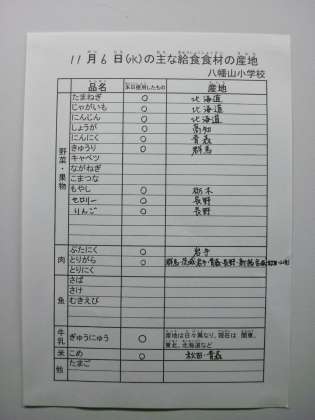 11月6日(水)の主な給食食材の産地
八幡山小学校
品名 本日使用したもの 産地
野菜・果物
たまねぎ ○ 北海道
じゃがいも ○ 北海道
にんじん ○ 北海道
しょうが ○ 高知
にんにく ○ 青森
きゅうり ○ 群馬
キャベツ
ながねぎ
こまつな
もやし ○ 栃木
セロリー ○ 長野
りんご ○ 長野
肉
ぶたにく ○ 岩手
とりがら ○ 群馬・茨城・岩手・青森・長野・新潟
とりにく
魚
さば
さけ
むきえび
牛乳 ぎゅうにゅう ○ 産地は日々異なり、現在は、関東、
東北、北海道など
米 こめ ○ 秋田・青森
他 たまご